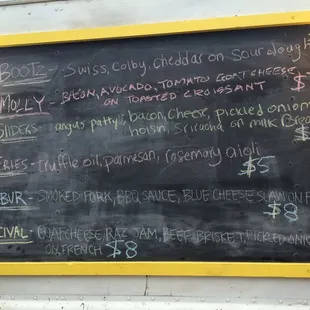 BOOTZ - Swiss, Colby, cheddar on Sourdough
MOLLY - BACON, AVOCADO, TOMATO, GOAT CHEESE
ON TOASTED CROISSANT $
SLIDERS - angus patty, bacon, cheese, pickled onions
hoisin, Sriracha on milk Bread
FRIES - truffle oil, parmesan, rosemary aioli
$5
BUR - SMOKED PORK, BBQ SAUCE, BLUE CHEESE SLAW ON F
$8
CIVAL - GOAT CHEESE, RAZ JAM, BEEF BRISKET, PICKLED ONION
ON FRENCH $8